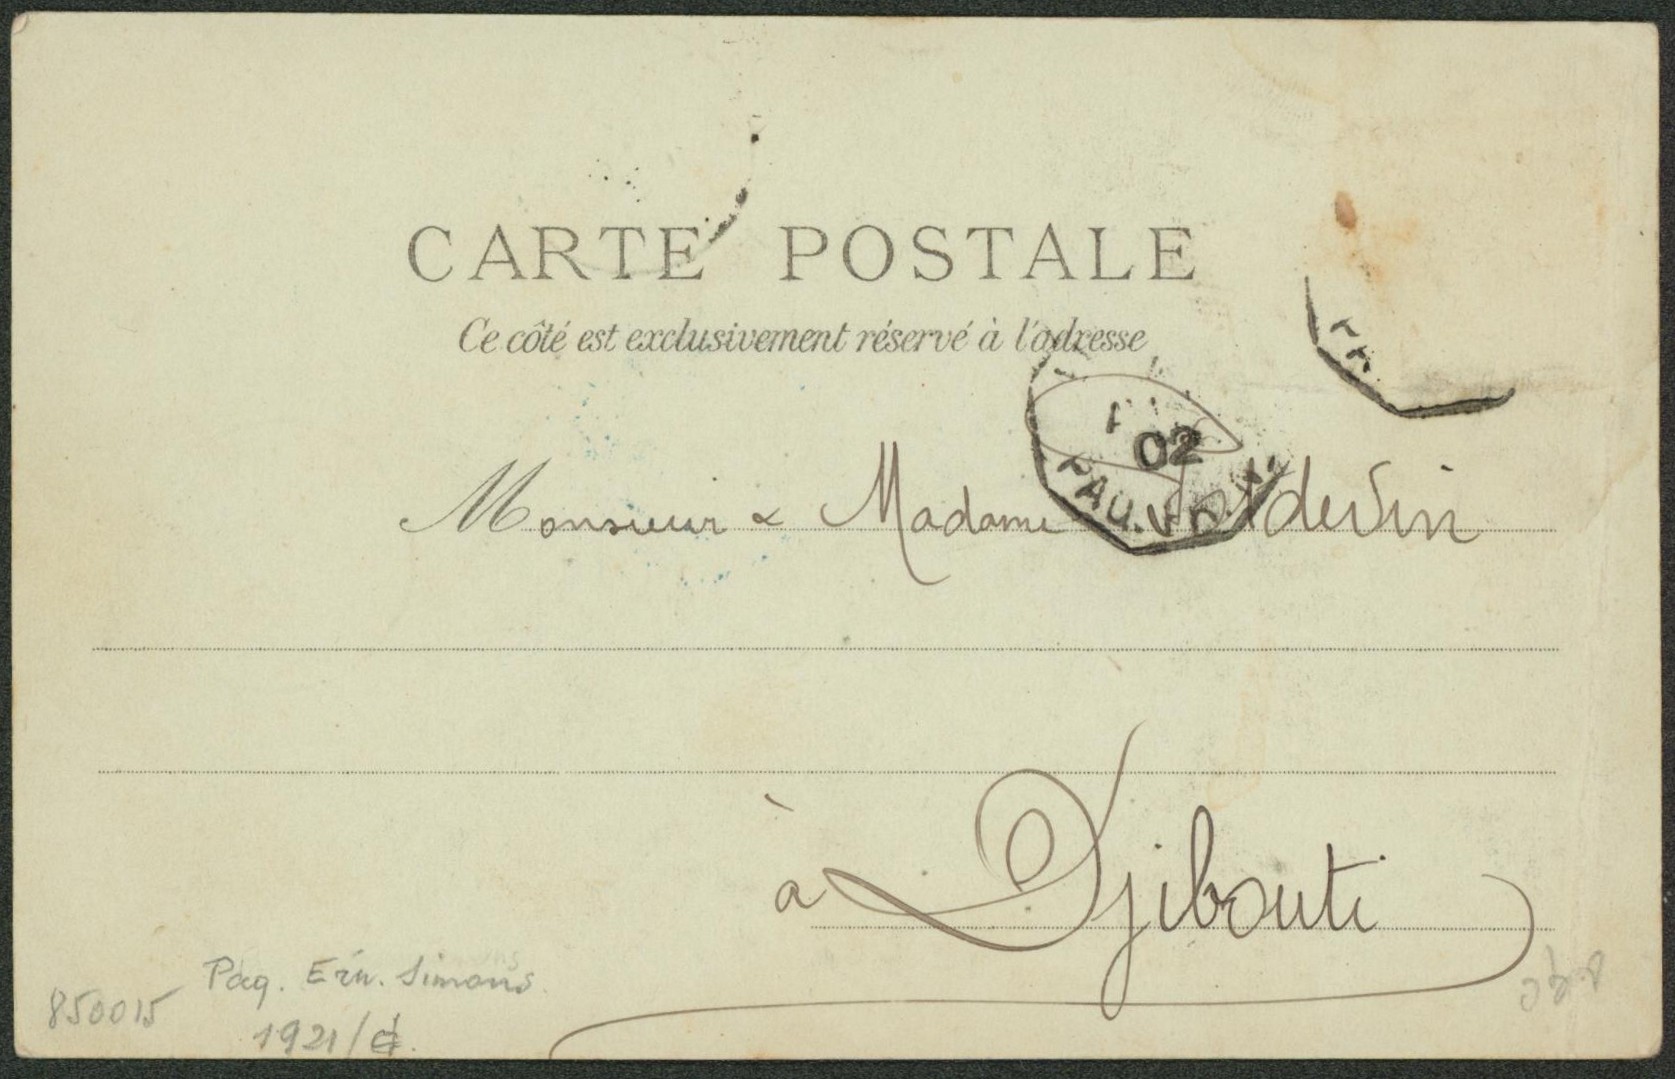 CARTE POSTALE
Ce côté est exclusivement réservé à l'adresse
02
PAQ. FR. N
Monsieur & Madame
à Djibouti
Paq. Ern. Simons
850015
1921/